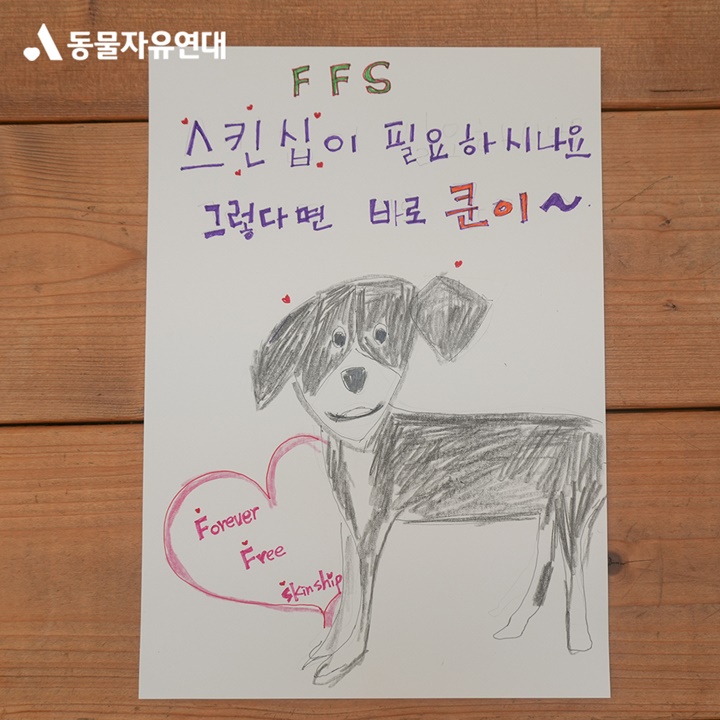 동물자유연대
FFS
스킨십이 필요하시나요
그렇다면 바로 쿤이~
Forever
Free
skinship